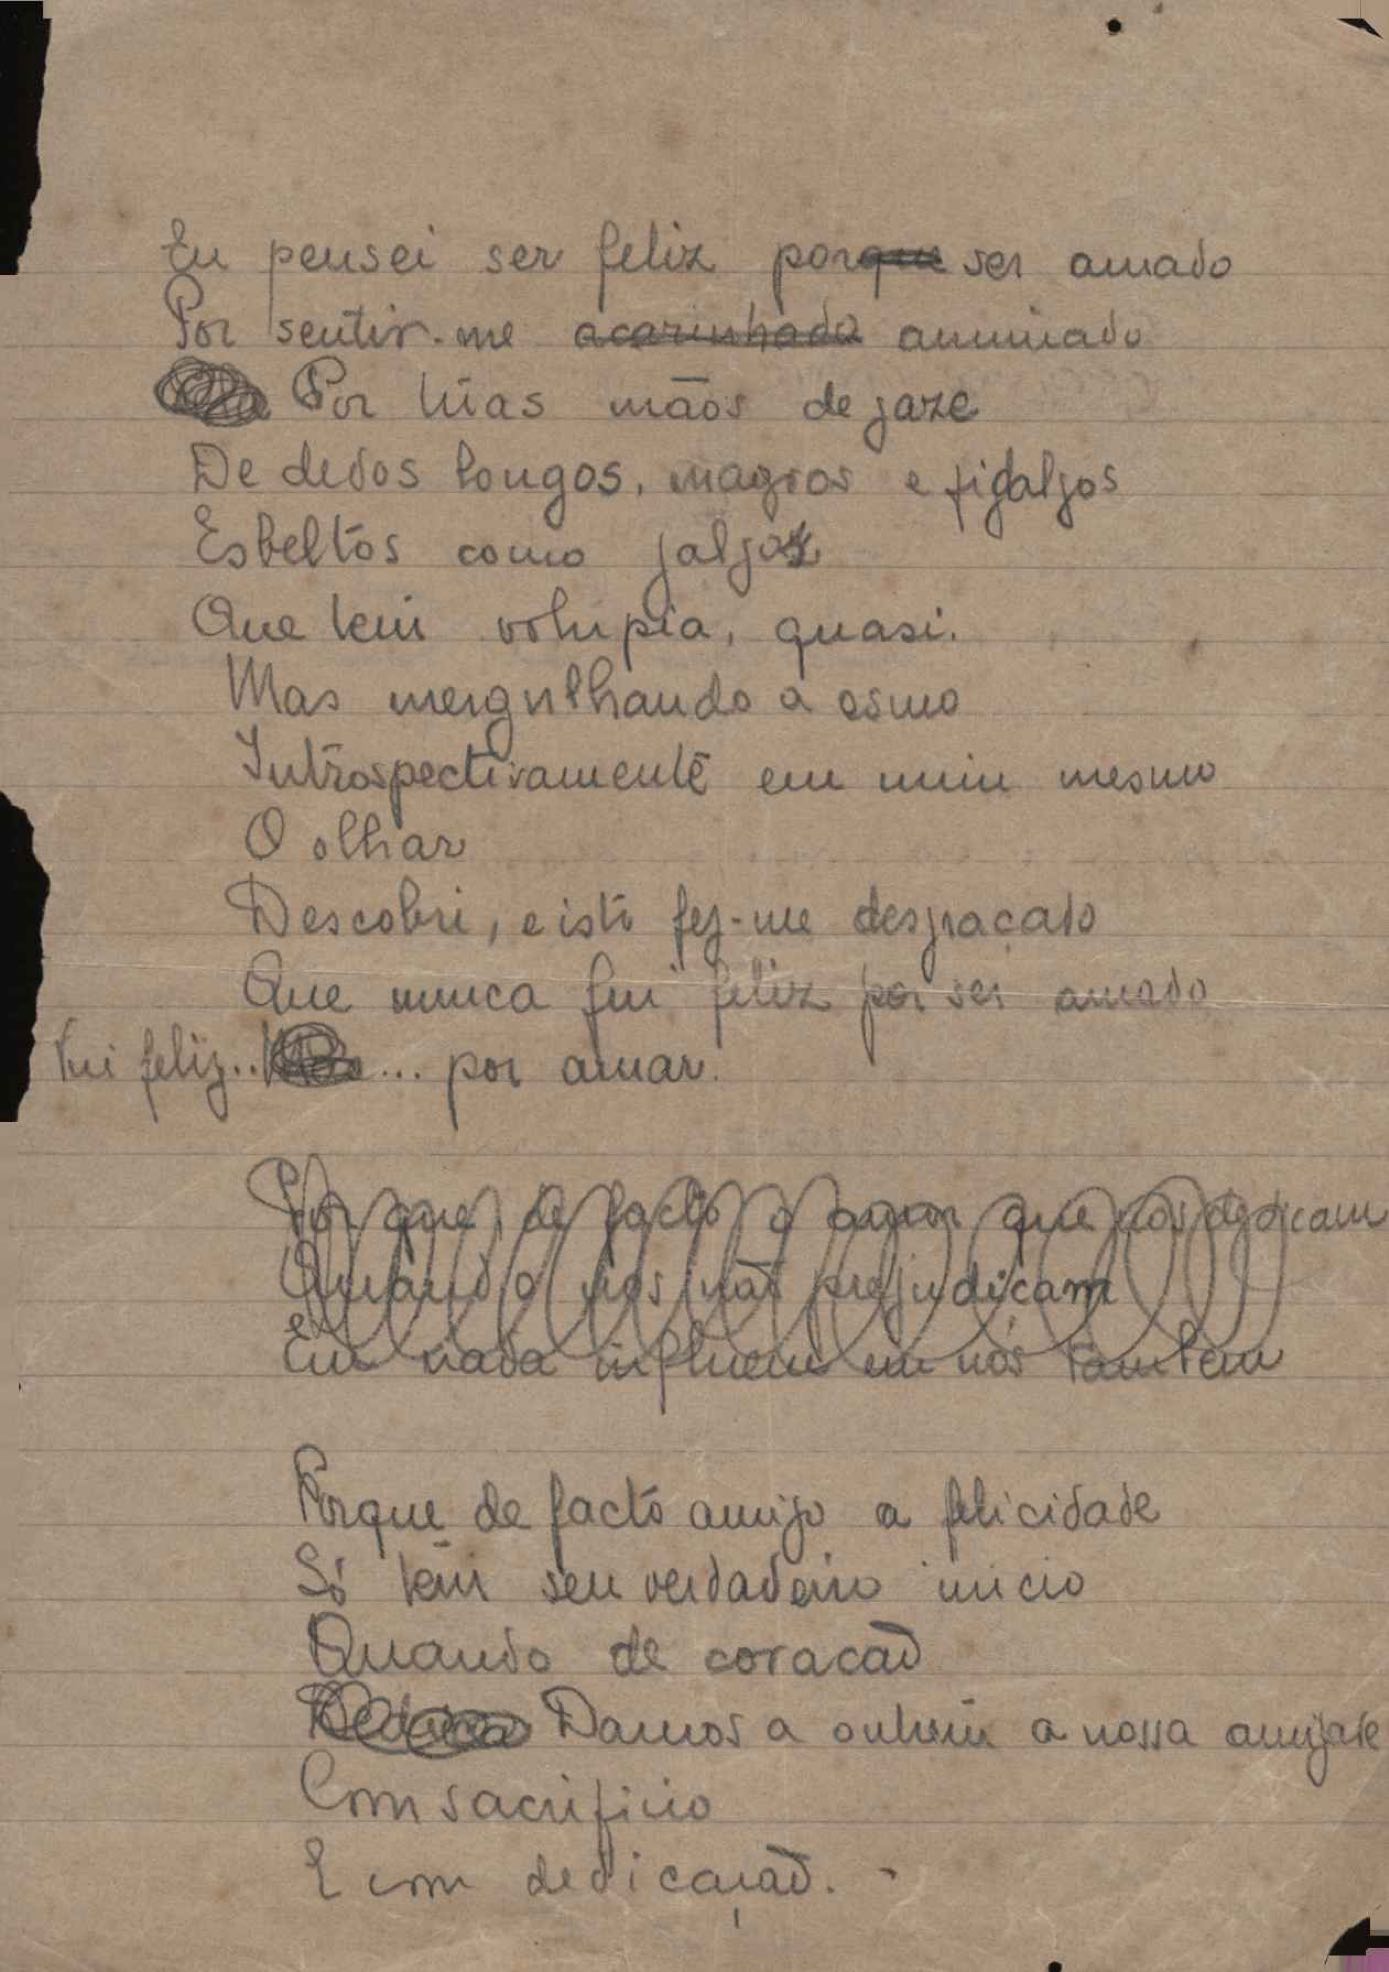 Eu pensei ser feliz porque ser amado
Por sentir-me acarinhado animado
Por túas mãos de gaze
De dedos longos, magros e fidalgos
Esbeltos como galgos
Que tem volupia, quasi.
Mas mergulhando a esmo
Introspectivamente em mim mesmo
O olhar
Descobri, e isto fez-me desgraçado
Que nunca fui feliz por ser amado
Fui feliz..... por amar.
Por que, de facto o amor que nos dedicam
Quando nos não prejudicam
Em nada influem em nós tambem
Porque de facto amigo a felicidade
Só tem seu verdadeiro inicio
Quando de coracão
Damos a outrem a nossa amizade
Com sacrificio
E com dedicação.